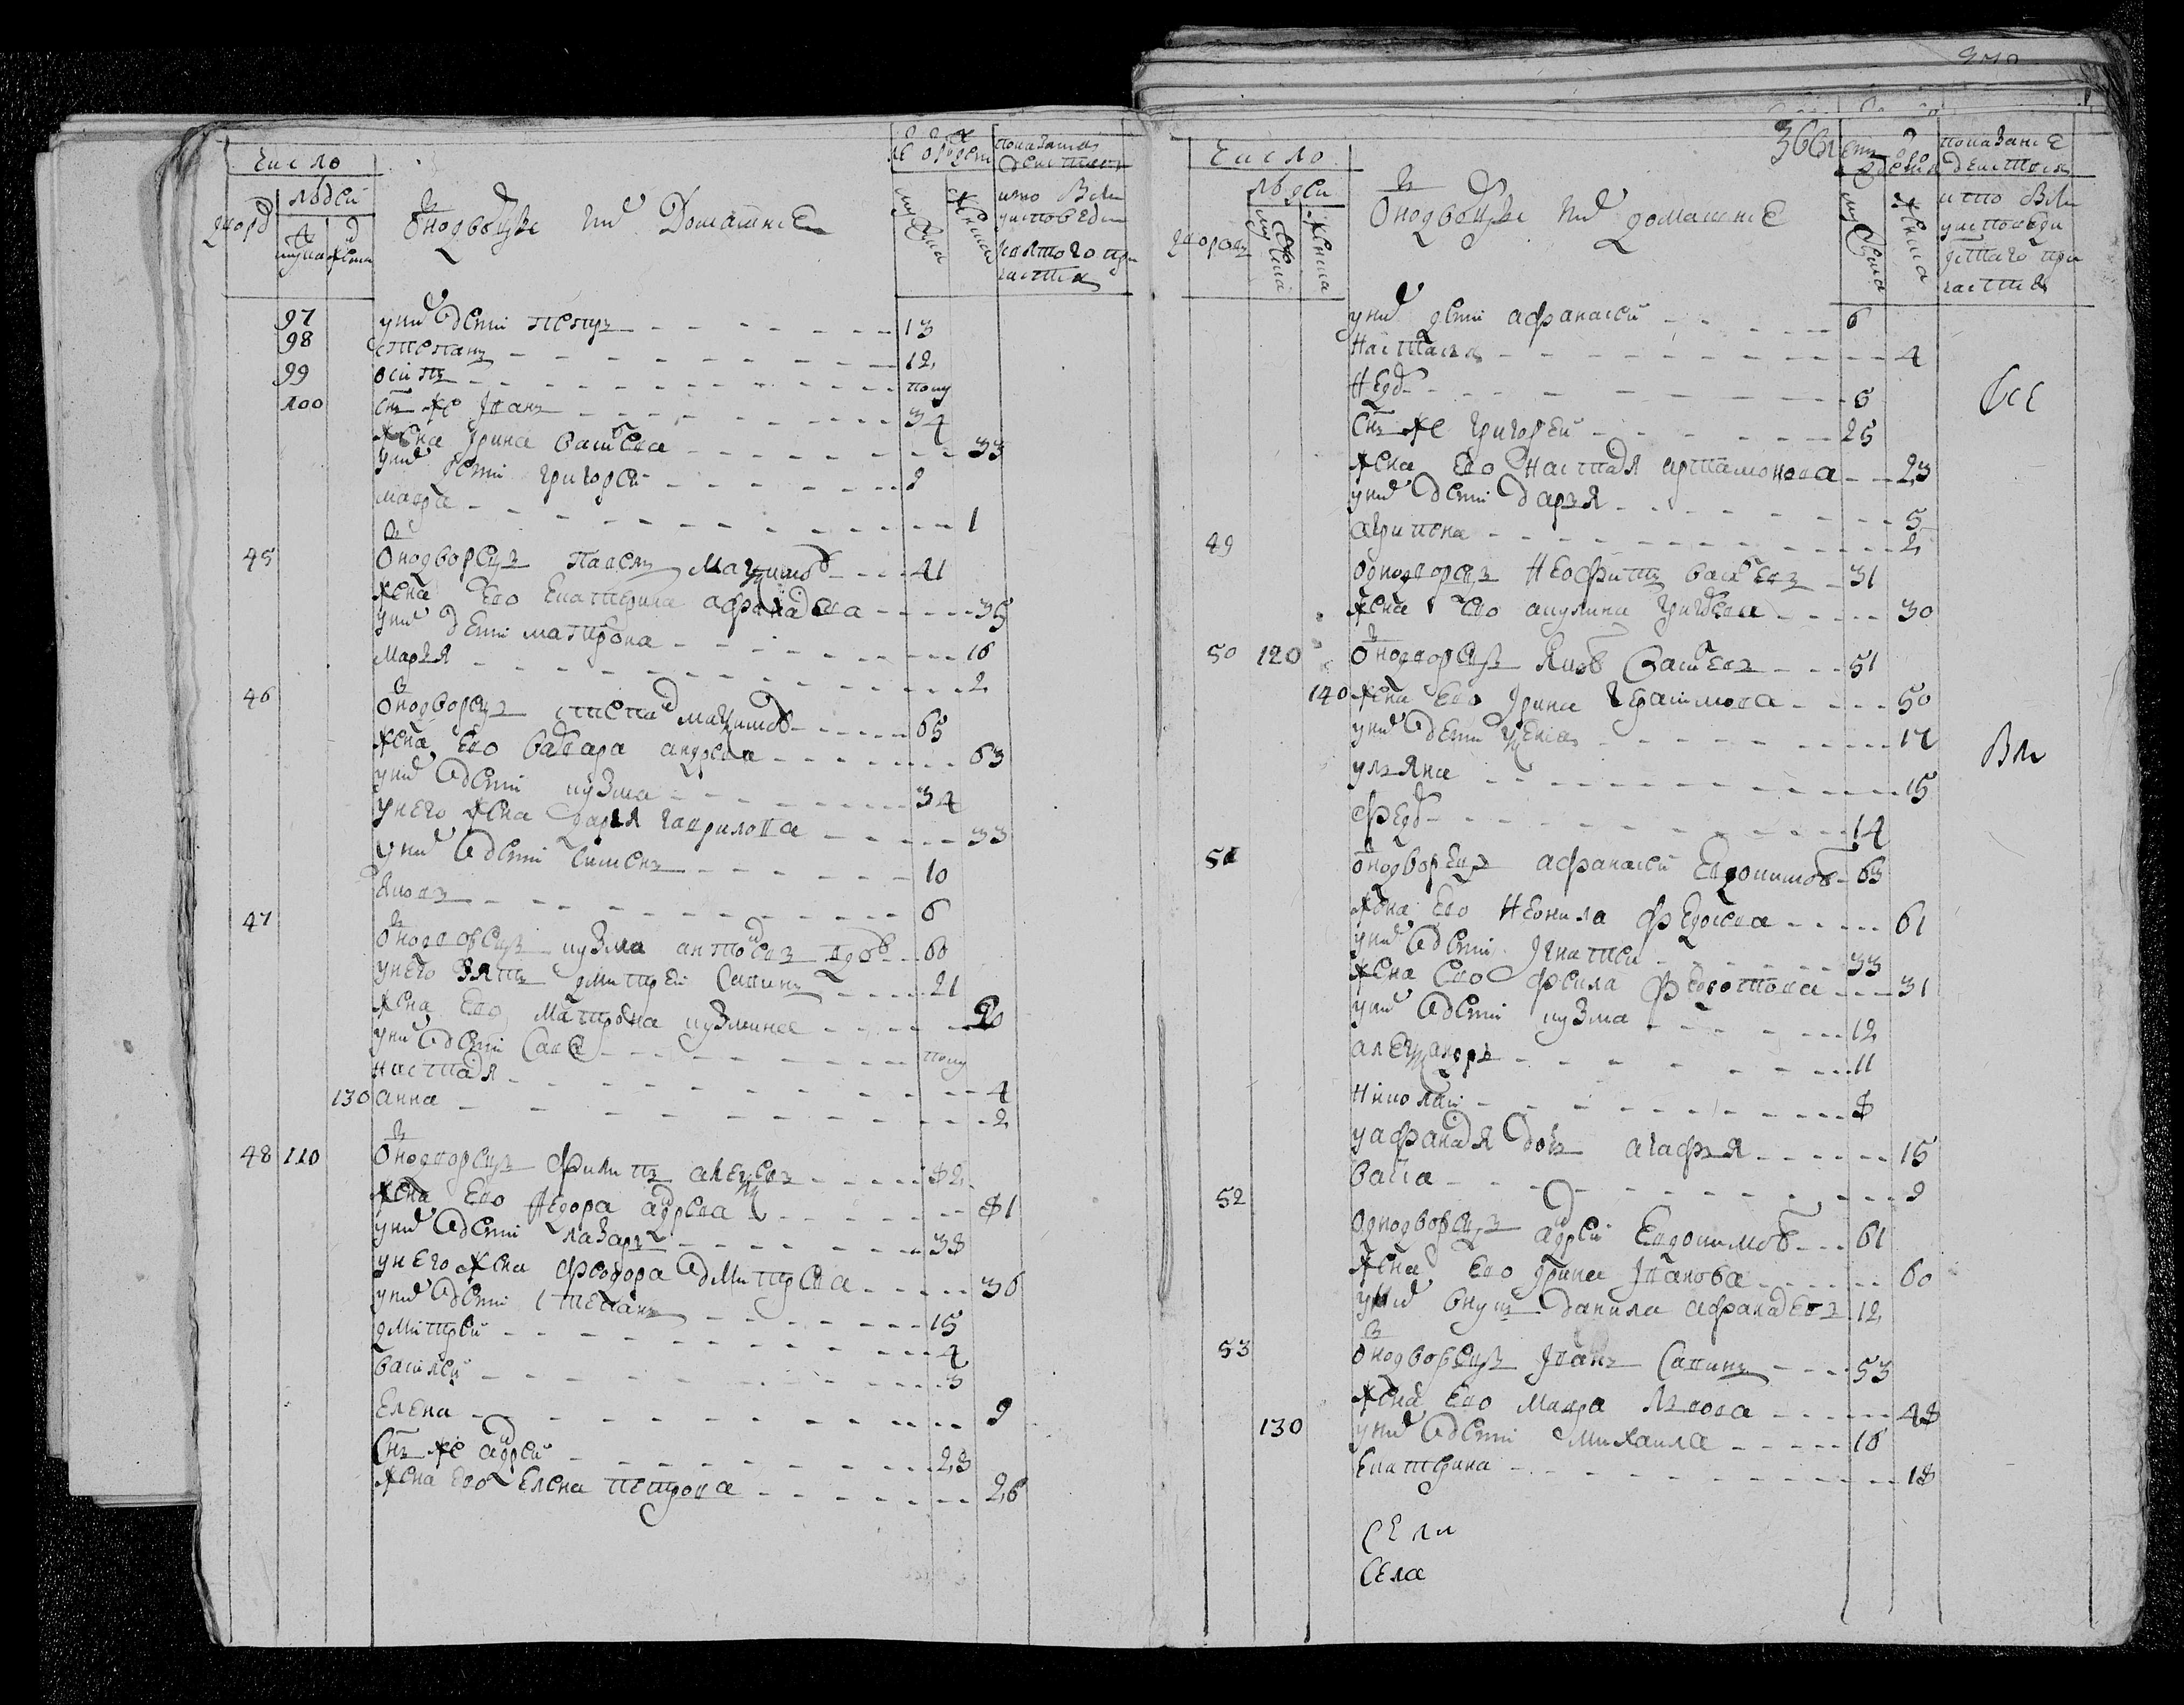 Число
дворо
людей
мужеска
женска
Однодворцы и их домашние
лет от рождения
мужеска
женска
показание действия
кто был у исповеди и святого причастия
97 у них дети Петръ 13
98 Степанъ 12
99 Осипъ полу
100 Сынъ же Иванъ 34
жена Ирина Васильева 33
у них дети Григорей 2
Мавра 1
45 Однодворецъ Павелъ Максимов 41
жена ево Екатерина Афанасьева 35
у них дети Матрона 16
Марья 2
46 Однодворецъ Степан Максимов 65
жена ево Варвара Андреева 63
у них дети Кузма 34
у него жена Дарья Гаврилова 33
у них дети Симонъ 10
Яковъ 6
47 Однодворецъ Кузма Антоновъ вдов 60
у него зять Дмитрей Савинъ 21
жена ево Матрона Кузмина 20
у них дети Сава полу
Настасья 4
130 Анна 2
48 110 Однодворецъ Филипъ Алексеевъ 82
жена ево Федора Андреева 81
у них дети Лазарь 38
у него жена Феодора Дмитрева 36
у них дети Степанъ 15
Дмитрей 4
Василей 3
Елена 9
Сынъ же Андрей 28
жена ево Елена Петрова 26
366
Число
дворовъ
людей
мужеска
женска
Однодворцы и их домашние
лет от рождения
мужеска
женска
показание действия
кто был у исповеди и святаго причастия
у них дети Афанасей 6
Настасья 4
Федор 6
Сынъ же Григорей 25
жена ево Настасья Артамонова 23
у них дети Дарья 5
Агрипена 2
49 Однодворецъ Неофитъ Васильевъ 31
жена ево Акулина Григорьева 30
50 120 Однодворецъ Яков Васильевъ 51
140 жена ево Ирина Герасимова 50
у них дети Ксения 17
Ульяна 15
Федор 14
51 Однодворецъ Афанасей Евдокимов 63
жена ево Неонила Федосеева 61
у них дети Игнатей 33
жена ево Фекла Федотова 31
у них дети Кузма 12
Александръ 11
Николай 8
у Афанасья дочь Агафья 15
Васса 9
52 Однодворецъ Андрей Евдокимов 61
жена ево Ирина Иванова 60
у них внук Данила Афанасьевъ 12
53 Однодворецъ Иванъ Савинъ 53
жена ево Мавра Львова 48
130 у них дети Михаила 16
Екатерина 18
Все
Были
села